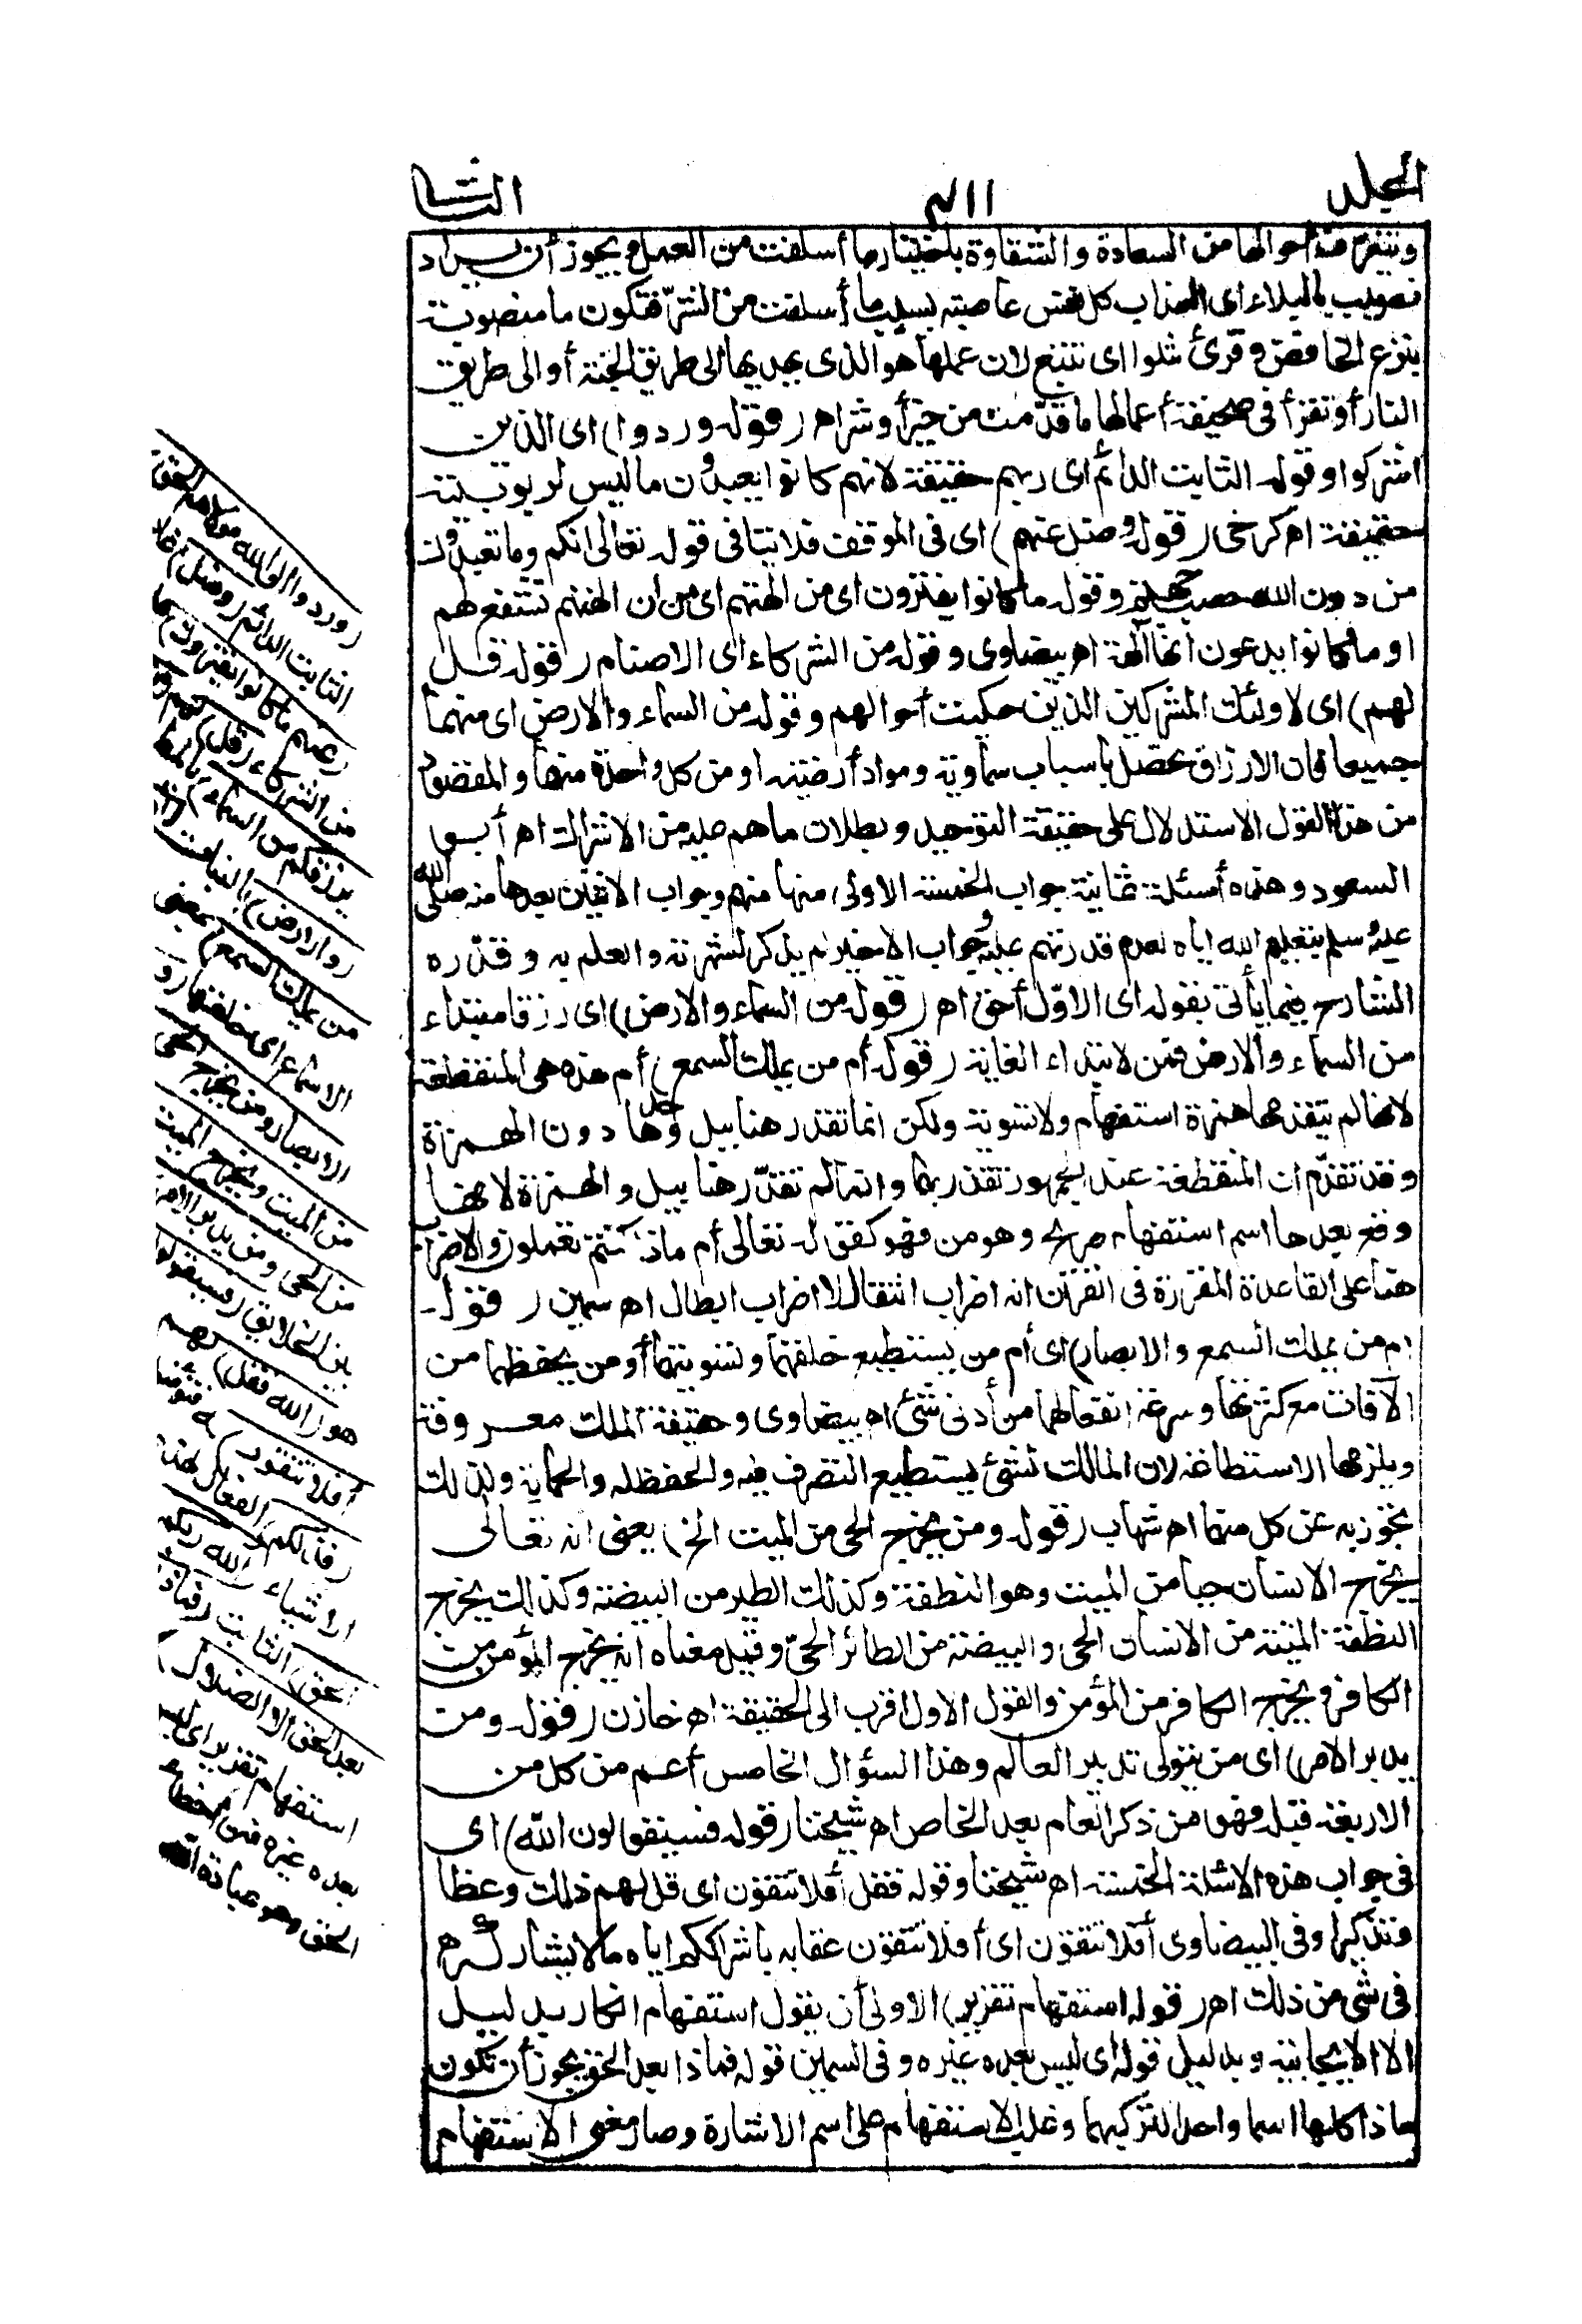 المجلد
٣١١
الثانى
وتتعرف منه أحوالها من السعادة والشقاوة باختبار ما أسلفت من العمل ويجوز أن يراد
نصيب بالبلاء اى العذاب كل نفس عاصية بسبب ما أسلفت من الشر فتكون ما منصوبة
بنزع الخافض وقرئ تتلوا اى تتبع لان عملها هو الذى يهديها الى طريق الجنة أو الى طريق
النار أو تقرأ فى صحيفة أعمالها ما قدّمت من خير أو شر اه (قوله وردوا) اى الذين
اشركوا وقوله الثابت الدائم اى ربهم حقيقة لانهم كانوا يعبدون ما ليس لربوبيته
حقيقة اه كرخى (قوله وضل عنهم) اى فى الموقف فلا ينافى قوله تعالى انكم وما تعبدون
من دون الله حصب جهنم وقوله ما كانوا يفترون اى من الهتهم اى من ان الهتهم تشفع لهم
او ما كانوا يدعون انها آلهة اه بيضاوى وقوله من الشركاء اى الاصنام (قوله قل
لهم) اى لاولئك المشركين الذين حكيت أحوالهم وقوله من السماء والارض اى منهما
جميعا فان الارزاق تحصل باسباب سماوية ومواد أرضية او من كل واحدة منهما والمقصود
من هذا القول الاستدلال على حقيقة التوحيد وبطلان ما هم عليه من الاشراك اه أبو
السعود وهذه أسئلة ثمانية جواب الخمسة الاولى منها منهم وجواب الاثنين بعدها منه صلى الله
عليه وسلم بتعليم الله اياه لعدم قدرتهم عليه وجواب الاخير لم يذكر لشهرته والعلم به وقدّره
الشارح فيما يأتى بقوله اى الاوّل أحق اه (قوله من السماء والارض) اى رزقا مبتداء
من السماء والارض فمن لابتداء الغاية (قوله أم من يملك السمع) أم هذه هى المنقطعة
لانها لم يتقدمها همزة استفهام ولا تسوية ولكن انما تقدر هنا ببل وحدها دون الهمزة
وقد تقدّم ان المنقطعة عند الجمهور تقدر بهما وانما لم تقدّر هنا ببل والهمزة لانها
وقع بعدها اسم استفهام صريح وهو من فهو كقوله تعالى أم ماذا كنتم تعملون والاضراب
هنا على القاعدة المقررة فى القرآن انه اضراب انتقال لا اضراب ابطال اه سمين (قوله
ام من يملك السمع والابصار) اى أم من يستطيع خلقهما وتسويتهما أو من يحفظهما من
الآفات مع كثرتها وسرعة انفعالهما من أدنى شئ اه بيضاوى وحقيقة الملك معروفة
ويلزمها الاستطاعة لان المالك لشئ يستطيع التصرف فيه والحفظ له والحماية ولذلك
تجوز به عن كل منهما اه شهاب (قوله ومن يخرج الحى من الميت الخ) يعنى انه تعالى
يخرج الانسان حيا من الميت وهو النطفة وكذلك الطير من البيضة وكذلك يخرج
النطفة الميتة من الانسان الحى والبيضة من الطائر الحىّ وقيل معناه انه يخرج المؤمن من
الكافر ويخرج الكافر من المؤمن والقول الاول اقرب الى الحقيقة اه خازن (قوله ومن
يدبر الامر) اى من يتولى تدبير العالم وهذا السؤال الخامس أعم من كل من
الاربعة قبله فهو من ذكر العام بعد الخاص اه شيخنا (قوله فسيقولون الله) اى
فى جواب هذه الاسئلة الخمسة اه شيخنا وقوله فقل أفلا تتقون اى قل لهم ذلك وعظا
وتذكيرا وفى البيضاوى أفلا تتقون اى أفلا تتقون عقابه باشراككم اياه ما لا يشاركه
فى شئ من ذلك اه (قوله استفهام تقرير) الاولى أن يقول استفهام انكار بدليل
الا الايجابية وبدليل قوله اى ليس بعده غيره وفى السمين قوله فماذا بعد الحق يجوز أن تكون
ماذا كلها اسما واحدا لتركيبهما وغلب الاستفهام على اسم الاشارة وصار معنى الاستفهام
(وردوا الى الله مولاهم الحق)
الثابت الدائم (وضل) غاب
(عنهم ما كانوا يفترون)
من الشركاء (قل) لهم (من
يرزقكم من السماء) بالمطر
(والارض) بالنبات (أم
من يملك السمع) بمعنى
الاسماع اى خلقها (و
الابصار ومن يخرج الحى
من الميت ويخرج الميت
من الحى ومن يدبر الامر)
بين الخلايق (فسيقولون)
هو (الله فقل) لهم
أفلا تتقون)ـه فتؤمنوا
(فذلكم) الفعال لهذه
الاشياء (الله ربكم
الحق) الثابت (فماذا
بعد الحق الا الضلال)
استفهام تقرير اى ليس
بعده غيره فمن أخطاء
الحق وهو عبادة الله